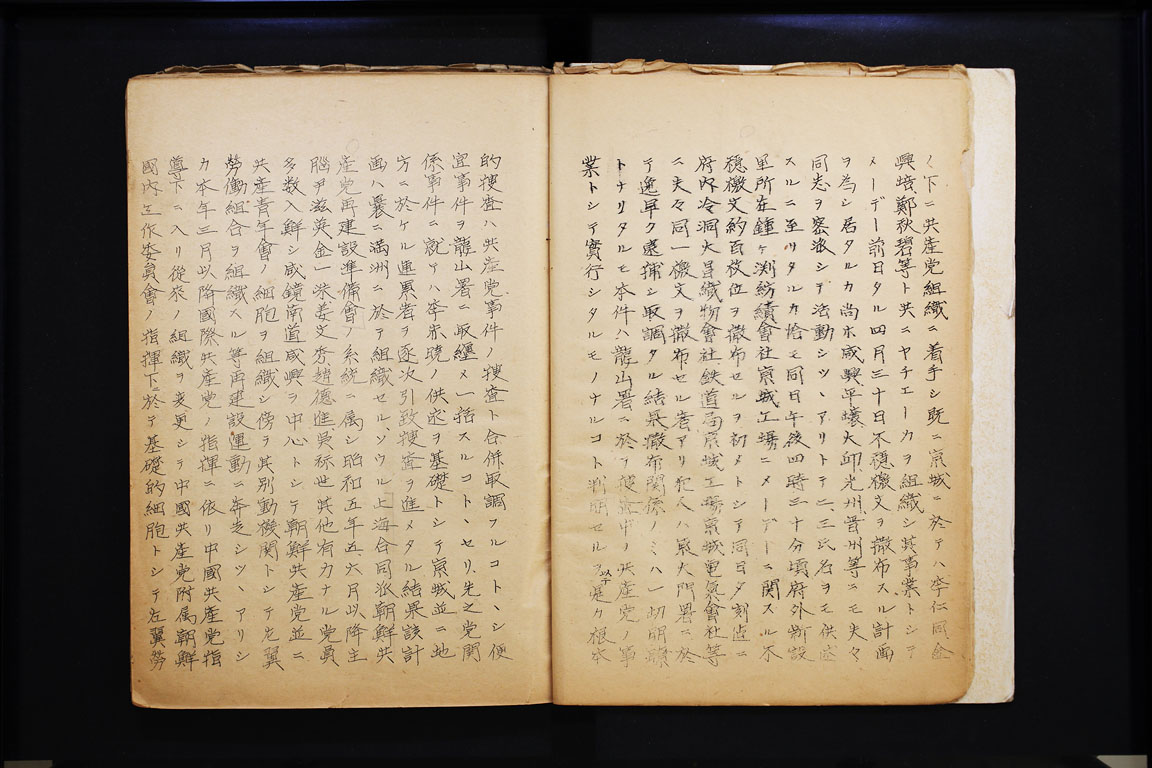 ノ下ニ共産党組織ニ着手シ既ニ京城ニ於テハ李仁同金
興培鄭秋碧等ト共ニヤチェーカヲ組織シ其事業トシテ
メーデー前日タル四月三十日不穏檄文ヲ撒布スル計画
ヲ為シ居タルカ尚ホ咸興平壌大邱光州晋州等ニモ夫々
同志ヲ密派シテ活動シツヽアリトテ二、三氏名ヲモ供述
スルニ至リタルカ恰モ同日午後四時三十分頃府外新設
里所在鐘ヶ渕紡績會社京城工場ニメーデーニ関スル不
穏檄文約百枚位ヲ撒布セルヲ初メトシテ同日夕刻迄ニ
府内冷洞大昌織物會社鉄道局京城工場京城電気會社等
ニ夫々同一檄文ヲ撒布セル者アリ犯人ハ東大門署ニ於
テ逸早ク逮捕シ取調タル結果撒布関係ノミハ一切明瞭
トナリタルモ本件ハ龍山署ニ於テ捜査中ノ共産党ノ事
業トシテ實行シタルモノナルコト判明セル以テ是カ根本
的捜査ハ共産党事件ノ捜査ト合併取調フルコトヽシ便
宜事件ヲ龍山署ニ取纏メ一括スルコトヽセリ先之党関
係事件ニ就テハ李赤暁ノ供述ヲ基礎トシテ京城並ニ地
方ニ於ケル連累者ヲ逐次引致捜査ヲ進メタル結果該計
画ハ曩ニ満洲ニ於テ組織セル、ソウル上海合同派朝鮮共
産党再建設準備會ノ系統ニ属シ昭和五年五、六月以降主
脳尹滋英金一洙姜文秀趙徳進呉祘世其他有力ナル党員
多数入鮮シ咸鏡南道咸興ヲ中心トシテ朝鮮共産党並ニ
共産青年會ノ細胞ヲ組織シ傍ヲ其別動機関トシテ左翼
勞働組合ヲ組織スル等再建設運動ニ奔走シツヽアリシ
カ本年三月以降國際共産党ノ指揮ニ依リ中國共産党指
導下ニ入リ従来ノ組織ヲ変更シテ中國共産党附属朝鮮
國内工作委員會ノ指揮下ニ於テ基礎的細胞トシテ左翼勞